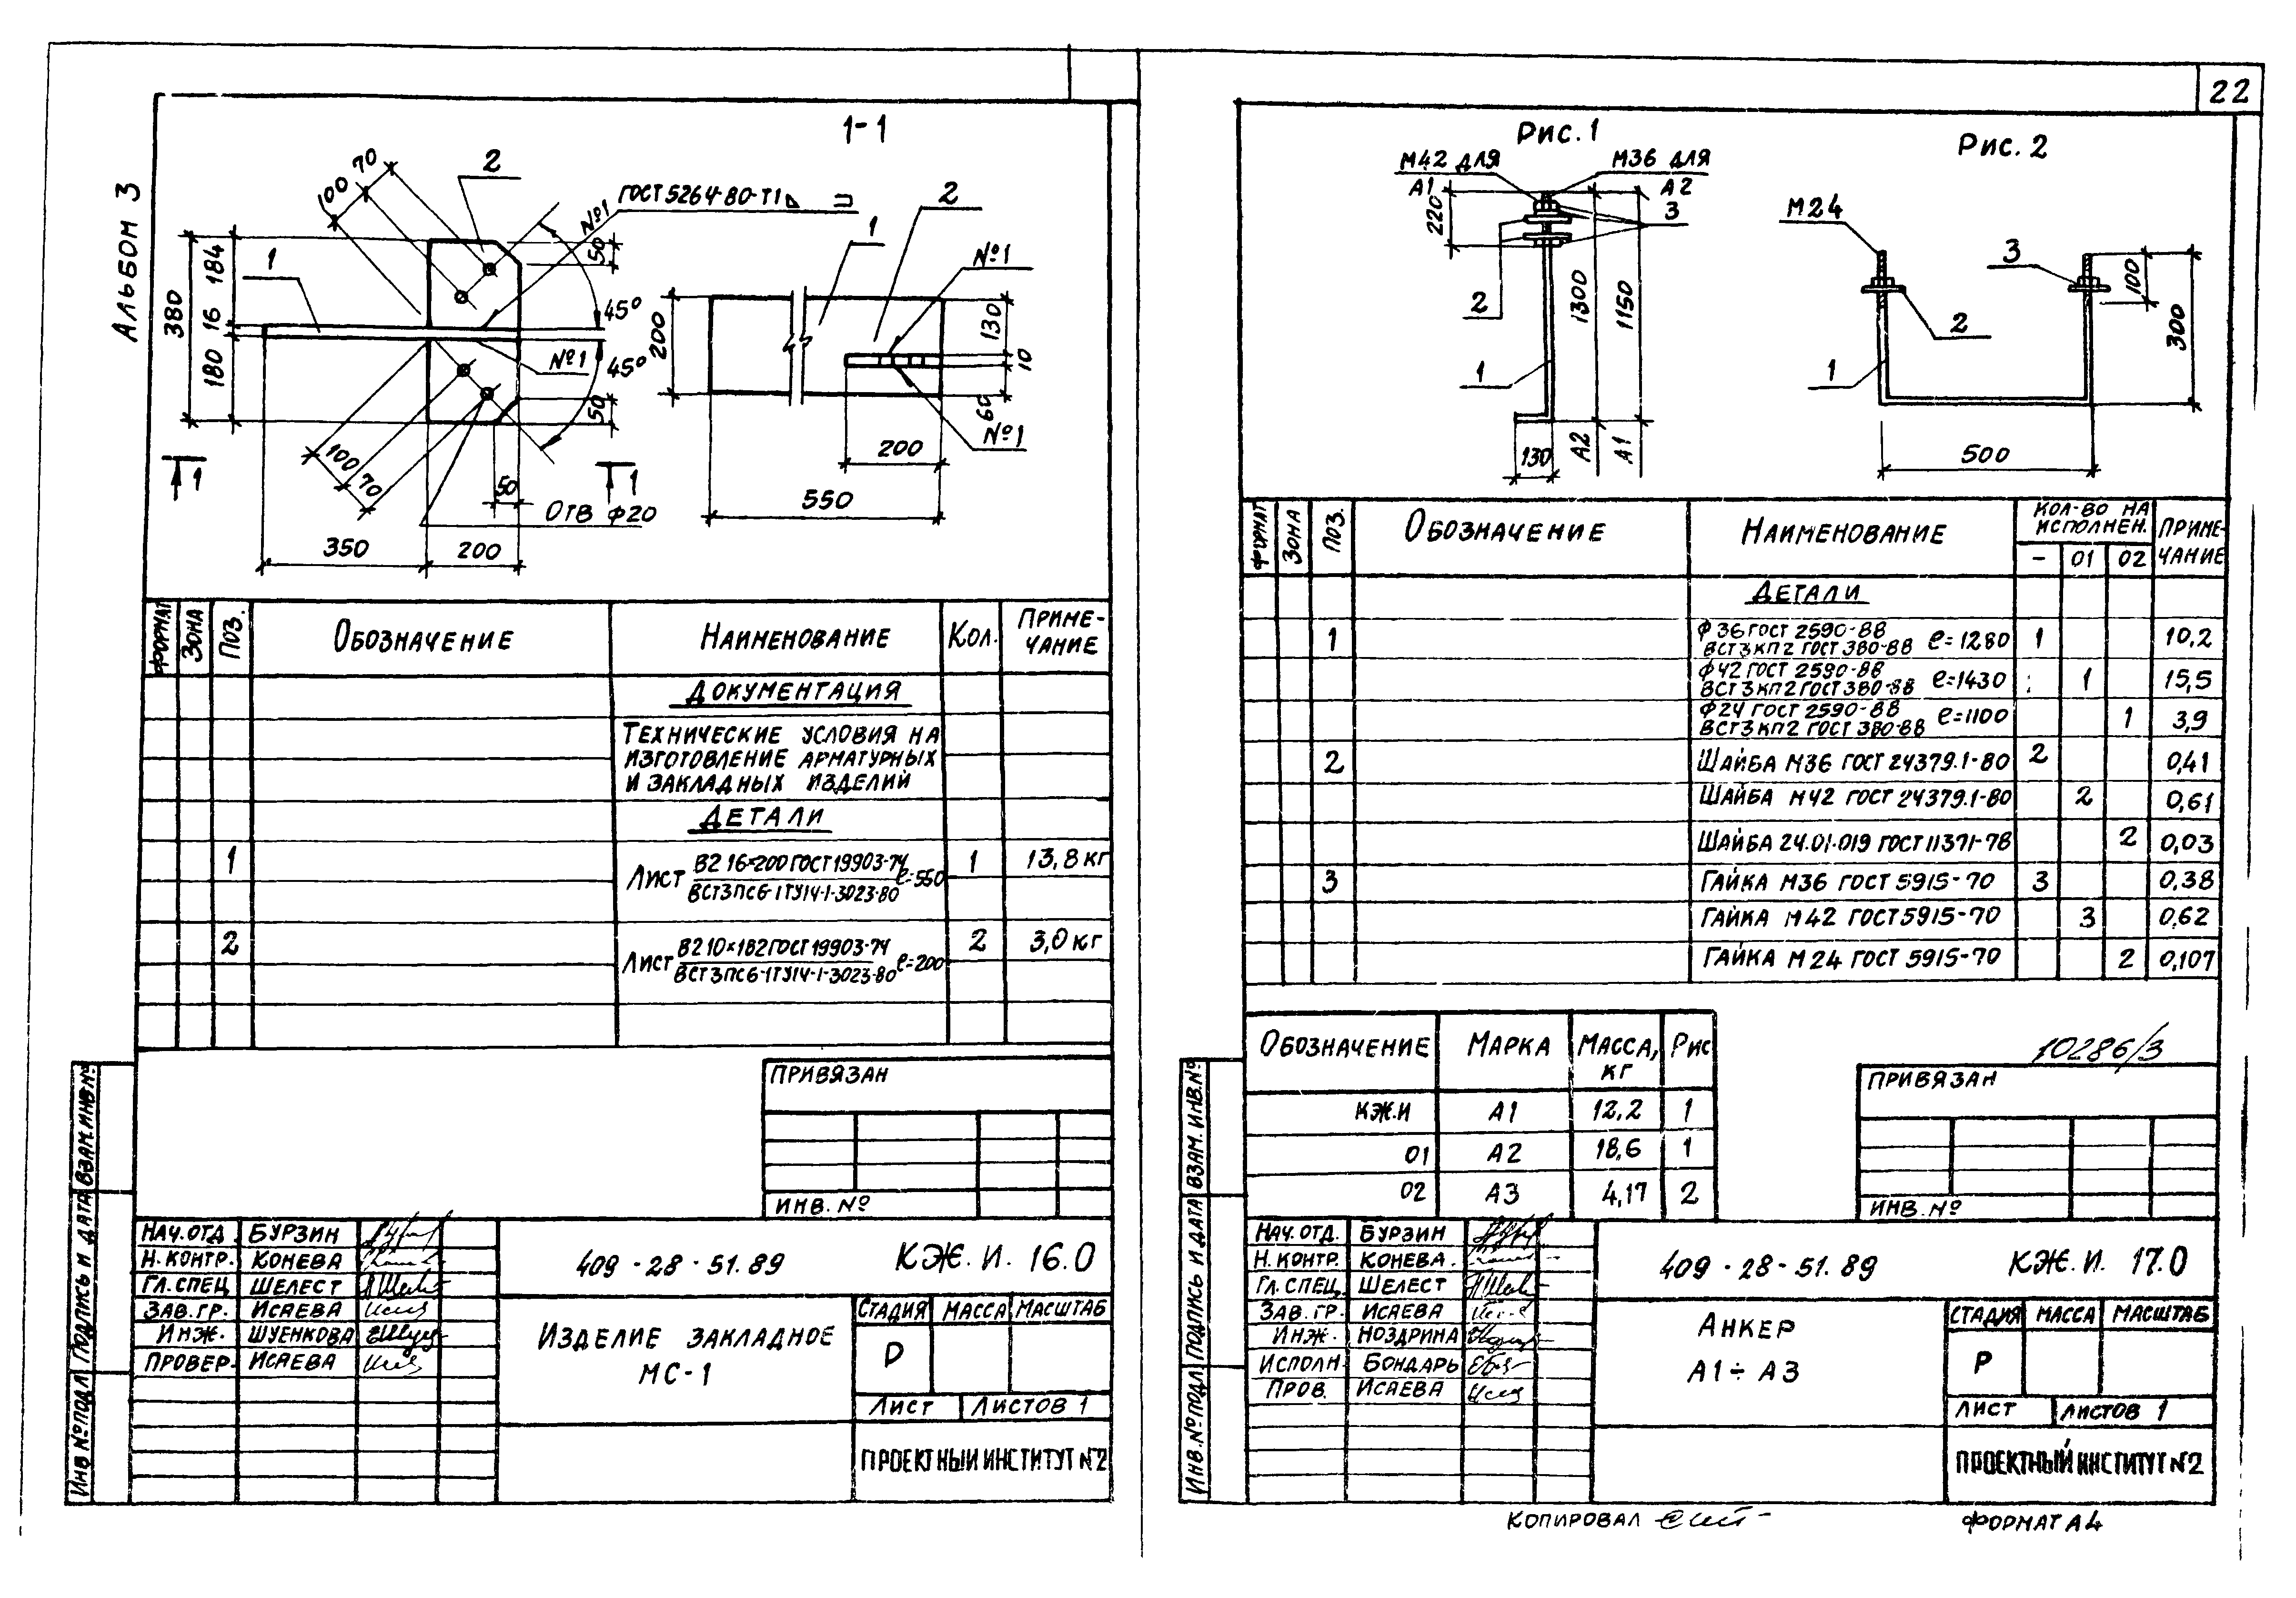 22
АЛЬБОМ 3
1-1
2
ГОСТ 5264-80-Т1
№1
100
70
50
45°
1
184
380
16
180
№1
45°
50
100
70
50
1
1
ОТВ ф20
350
200
2
1
№1
200
130
10
60
№1
200
550
ФОРМАТ
ЗОНА
ПОЗ.
ОБОЗНАЧЕНИЕ
НАИМЕНОВАНИЕ
КОЛ.
ПРИМЕ-
ЧАНИЕ
ДОКУМЕНТАЦИЯ
ТЕХНИЧЕСКИЕ УСЛОВИЯ НА
ИЗГОТОВЛЕНИЕ АРМАТУРНЫХ
И ЗАКЛАДНЫХ ИЗДЕЛИЙ
ДЕТАЛИ
1 ЛИСТ В2 16×200 ГОСТ 19903-74 ℓ=550 1 13,8 кг
ВСТ3ПС6-1ТУ14-1-3023-80
2 ЛИСТ В2 10×182 ГОСТ 19903-74 ℓ=200 2 3,0 кг
ВСТ3ПС6-1ТУ14-1-3023-80
ПРИВЯЗАН
ИНВ. №
ВЗАМ.ИНВ.№
ПОДПИСЬ И ДАТА
ИНВ №ПОДЛ
НАЧ.ОТД. БУРЗИН
Н.КОНТР. КОНЕВА
ГЛ.СПЕЦ ШЕЛЕСТ
ЗАВ.ГР. ИСАЕВА
ИНЖ. ШУЕНКОВА
ПРОВЕР. ИСАЕВА
409-28-51.89 КЖ.И. 16.0
ИЗДЕЛИЕ ЗАКЛАДНОЕ
МС-1
СТАДИЯ МАССА МАСШТАБ
Р
ЛИСТ ЛИСТОВ 1
ПРОЕКТНЫЙ ИНСТИТУТ №2
РИС.1
М42 ДЛЯ
А1
М36 ДЛЯ
А2
3
220
2
1300
1150
1
130
А2
А1
РИС. 2
М24
3
100
2
1
300
500
ФОРМАТ
ЗОНА
ПОЗ.
ОБОЗНАЧЕНИЕ
НАИМЕНОВАНИЕ
КОЛ-ВО НА
ИСПОЛНЕН.
- 01 02
ПРИМЕ-
ЧАНИЕ
ДЕТАЛИ
1 ф36 ГОСТ 2590-88
ВСТ3КП2 ГОСТ 380-88 ℓ=1280 1 10,2
ф42 ГОСТ 2590-88
ВСТ3КП2 ГОСТ 380-88 ℓ=1430 1 15,5
ф24 ГОСТ 2590-88
ВСТ3КП2 ГОСТ 380-88 ℓ=1100 1 3,9
2 ШАЙБА М36 ГОСТ 24379.1-80 2 0,41
ШАЙБА М42 ГОСТ 24379.1-80 2 0,61
ШАЙБА 24.01.019 ГОСТ 11371-78 2 0,03
3 ГАЙКА М36 ГОСТ 5915-70 3 0,38
ГАЙКА М42 ГОСТ 5915-70 3 0,62
ГАЙКА М24 ГОСТ 5915-70 2 0,107
ОБОЗНАЧЕНИЕ МАРКА МАССА, КГ РИС
КЖ.И А1 12,2 1
01 А2 18,6 1
02 А3 4,17 2
10286/3
ПРИВЯЗАН
ИНВ.№
ВЗАМ. ИНВ.№
ПОДПИСЬ И ДАТА
ИНВ.№ПОДЛ
НАЧ.ОТД. БУРЗИН
Н.КОНТР. КОНЕВА.
ГЛ.СПЕЦ. ШЕЛЕСТ
ЗАВ.ГР. ИСАЕВА
ИНЖ. НОЗДРИНА
ИСПОЛН. БОНДАРЬ
ПРОВ. ИСАЕВА
409-28-51.89 КЖ.И. 17.0
АНКЕР
А1÷А3
СТАДИЯ МАССА МАСШТАБ
Р
ЛИСТ ЛИСТОВ 1
ПРОЕКТНЫЙ ИНСТИТУТ №2
КОПИРОВАЛ
ФОРМАТ А4